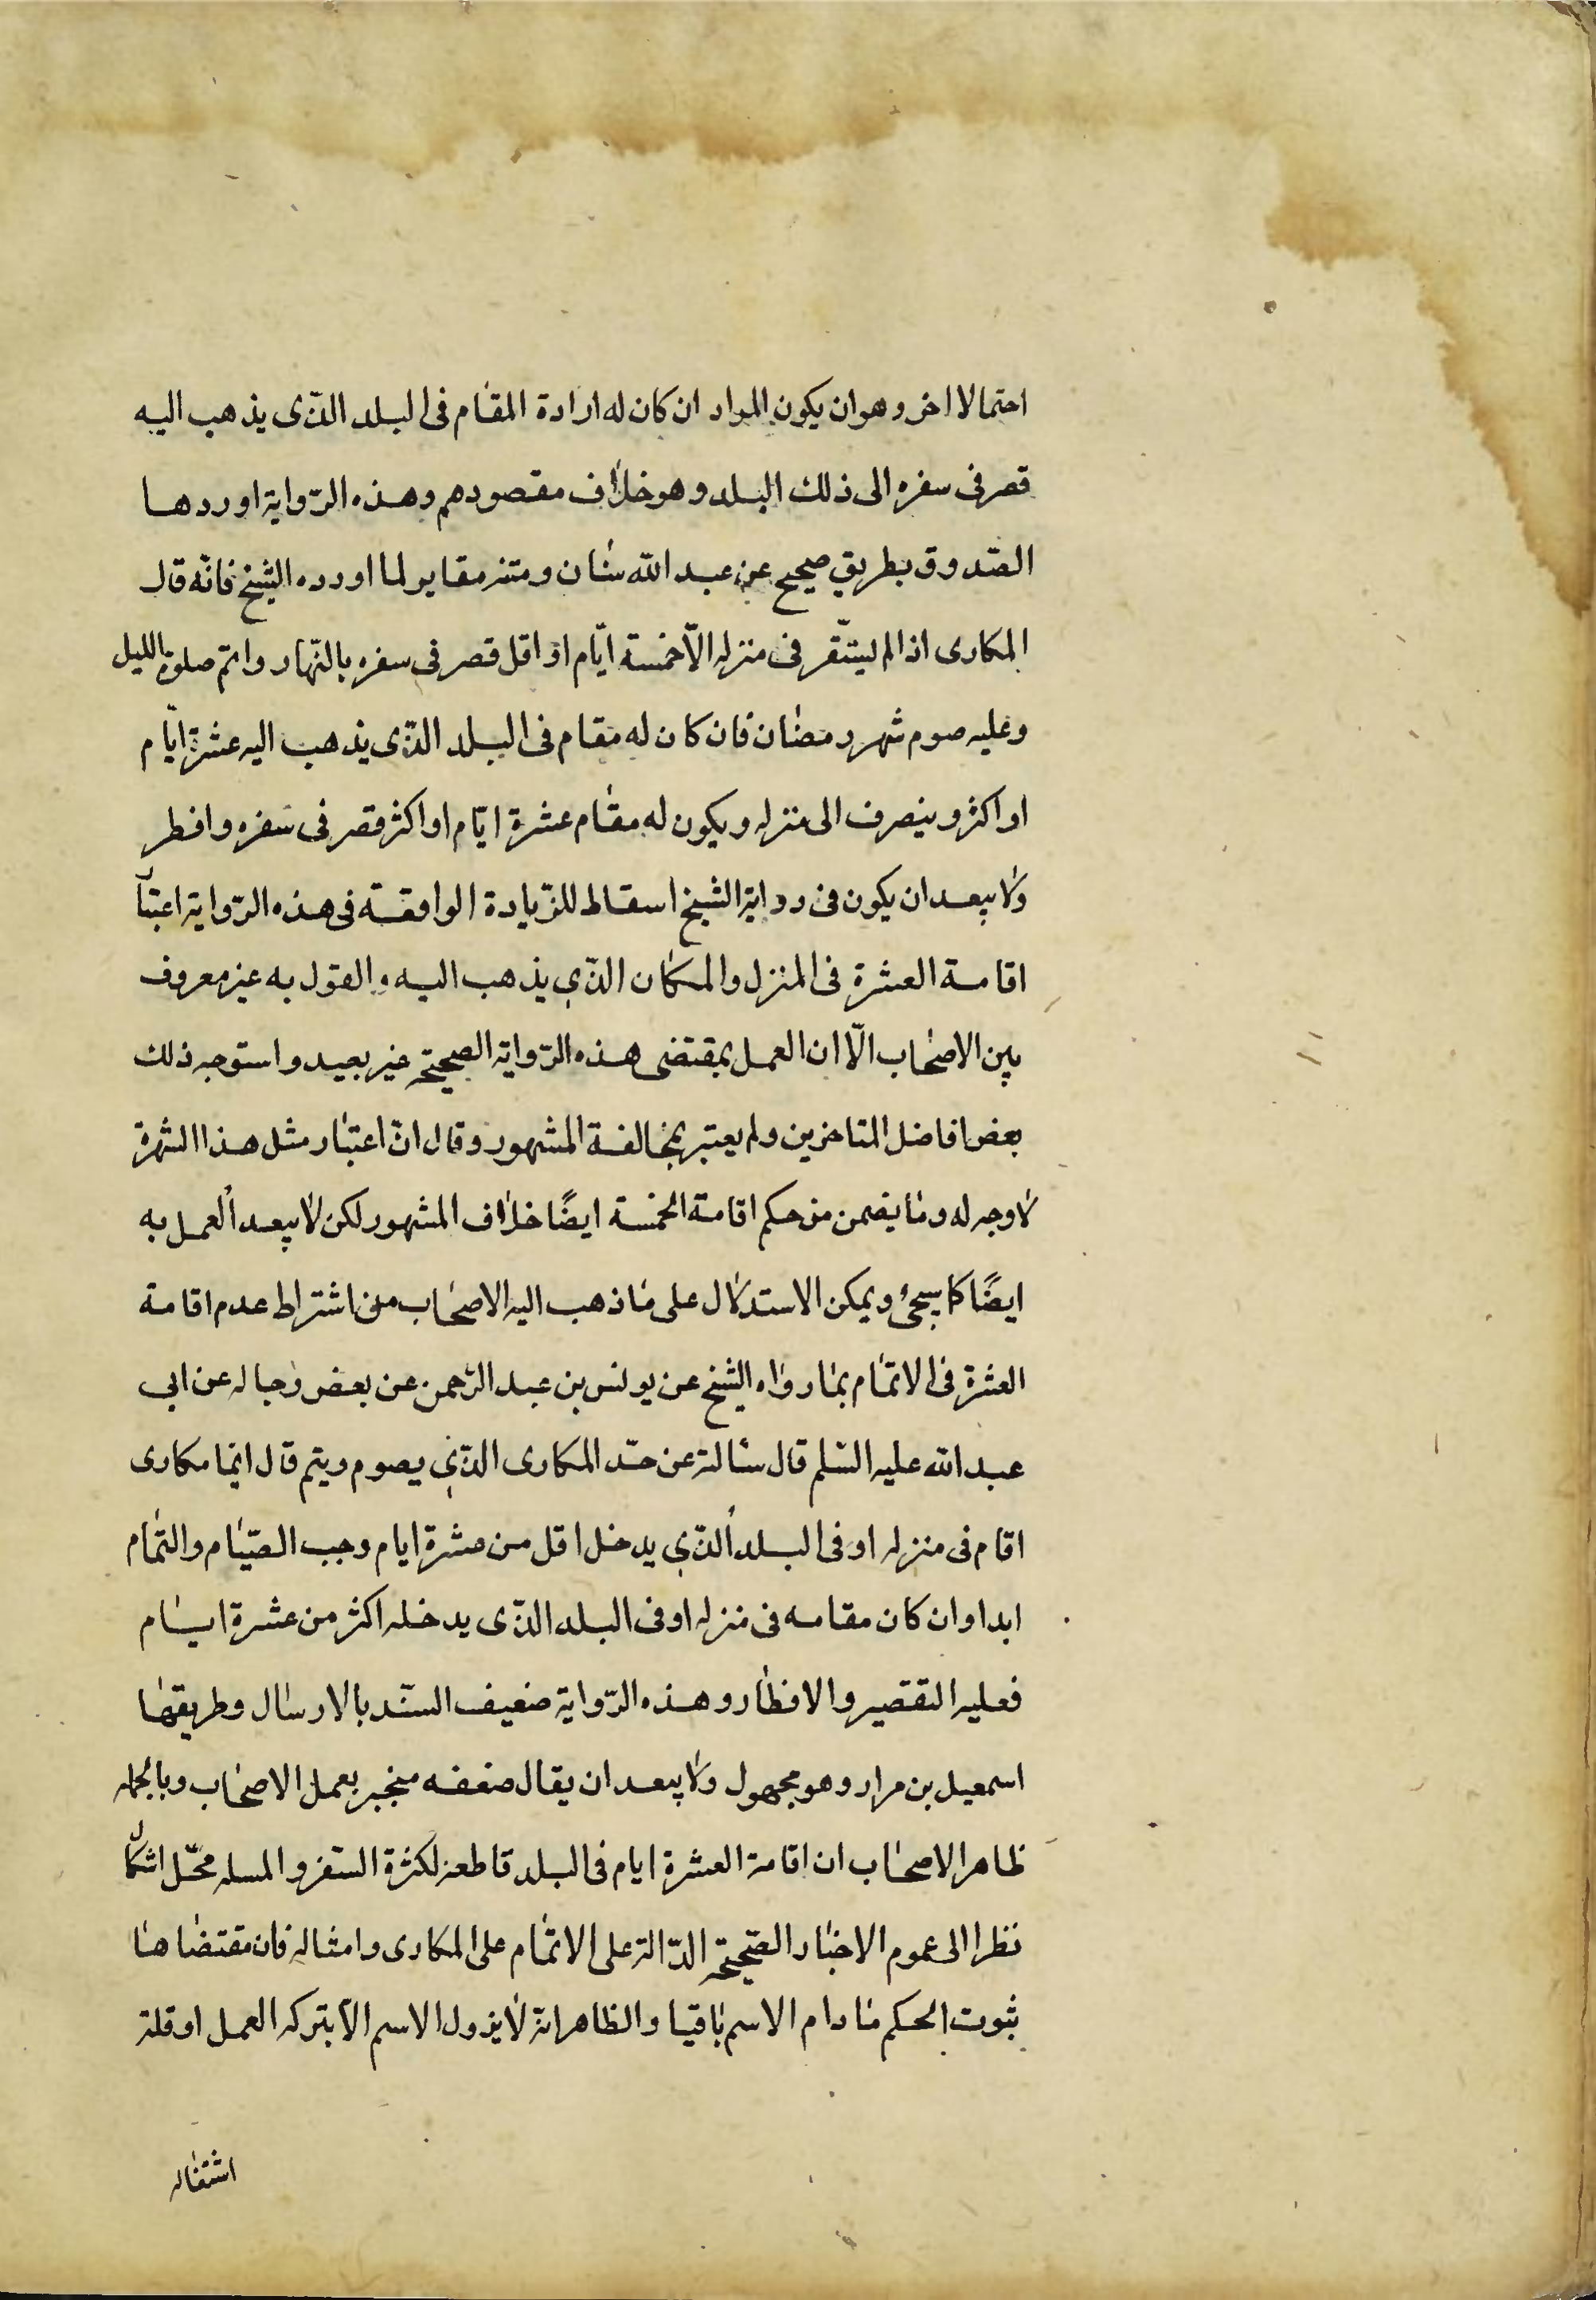 احتمالا اخر وهو ان يكون المراد ان كان له ارادة المقام فى البلد الذّى يذهب اليه
قصر فى سفره الى ذلك البلد وهو خلاف مقصودهم وهذه الرّواية اوردها
الصّدوق بطريق صحيح عن عبد الله سنان ومتنه مغاير لما اورده الشيخ فانّه قال
المكارى اذا لم يستقّر فى منزله الّا خمسة ايّام او اقل قصر فى سفره بالنّهار واتمّ صلوة بالليل
وعليه صوم شهر رمضان فان كان له مقام فى البلد الذّى يذهب اليه عشرة ايّام
او اكثر وينصرف الى منزله ويكون له مقام عشرة ايّام او اكثر قصر فى سفره وافطر
ولا يبعد ان يكون فى رواية الشيخ اسقاط للزّيادة الواقعة فى هذه الرّواية اعتبار
اقامة العشرة فى المنزل والمكان الذّي يذهب اليه والقول به غير معروف
بين الاصحاب الّا ان العمل بمقتضى هذه الرّواية الصحيحة غير بعيد واستوجه ذلك
بعض افاضل المتاخرين ولم يعتبر بمخالفة المشهور وقال انّ اعتبار مثل هذا الشهرة
لا وجه له وما يضمن من حكم اقامة الخمسة ايضًا خلاف المشهور لكن لا يبعد العمل به
ايضًا كما سيجئ ويمكن الاستدلال على ما ذهب اليه الاصحاب من اشتراط عدم اقامة
العشرة فى الاتمام بما رواه الشيخ عن يونس بن عبد الرّحمن عن بعض رجاله عن ابي
عبد الله عليه السّلم قال سالته عن حدّ المكارى الذّي يصوم ويتم قال ايّما مكارى
اقام فى منزله او فى البلد الذّي يدخل اقل من عشرة ايام وجب الصّيام والتمام
ابدا وان كان مقامه فى منزله او فى البلد الذّى يدخله اكثر من عشرة ايام
فعليه التقصير والافطار وهذه الرّواية ضعيف السنّد بالارسال وطريقها
اسمعيل بن مرار وهو مجهول ولا يبعد ان يقال ضعفه منجبر بعمل الاصحاب وبالجملة
ظاهر الاصحاب ان اقامة العشرة ايام فى البلد قاطعة لكثرة السّفر والمسله محّل اشكال
نظرا الى عموم الاخبار الصّحيحة الدّالة على الاتمام على المكارى وامثاله فان مقتضاها
ثبوت الحكم ما دام الاسم باقيا والظاهر انّه لا يزول الاسم الّا بتركه العمل او قلة
اشتغاله